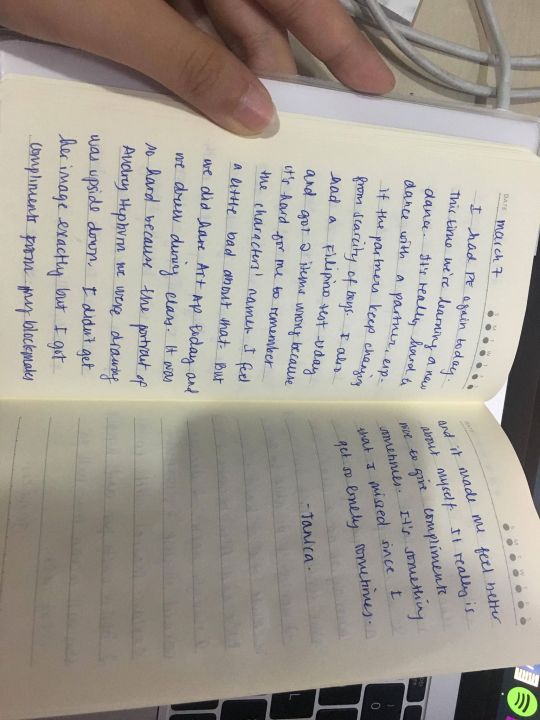 DATE March 7
I had PE again today.
This time we're learning a new
dance. It's really hard to
dance with a partner, esp.
if the partners keep changing
from scarcity of boys. I also
had a Filipino test today
and got 2 items wrong because
it's hard for me to remember
the characters' names. I feel
a little bad about that. But
we did have Art AP today and
we drew during class. It was
so hard because the portrait of
Audrey Hepburn we were drawing
was upside down. I didn't get
her image exactly but I got
compliments from my blockmates
DATE
and it made me feel better
about myself. It really is
nice to give compliments
sometimes. It's something
that I missed since I
get so lonely sometimes.
- Janica.